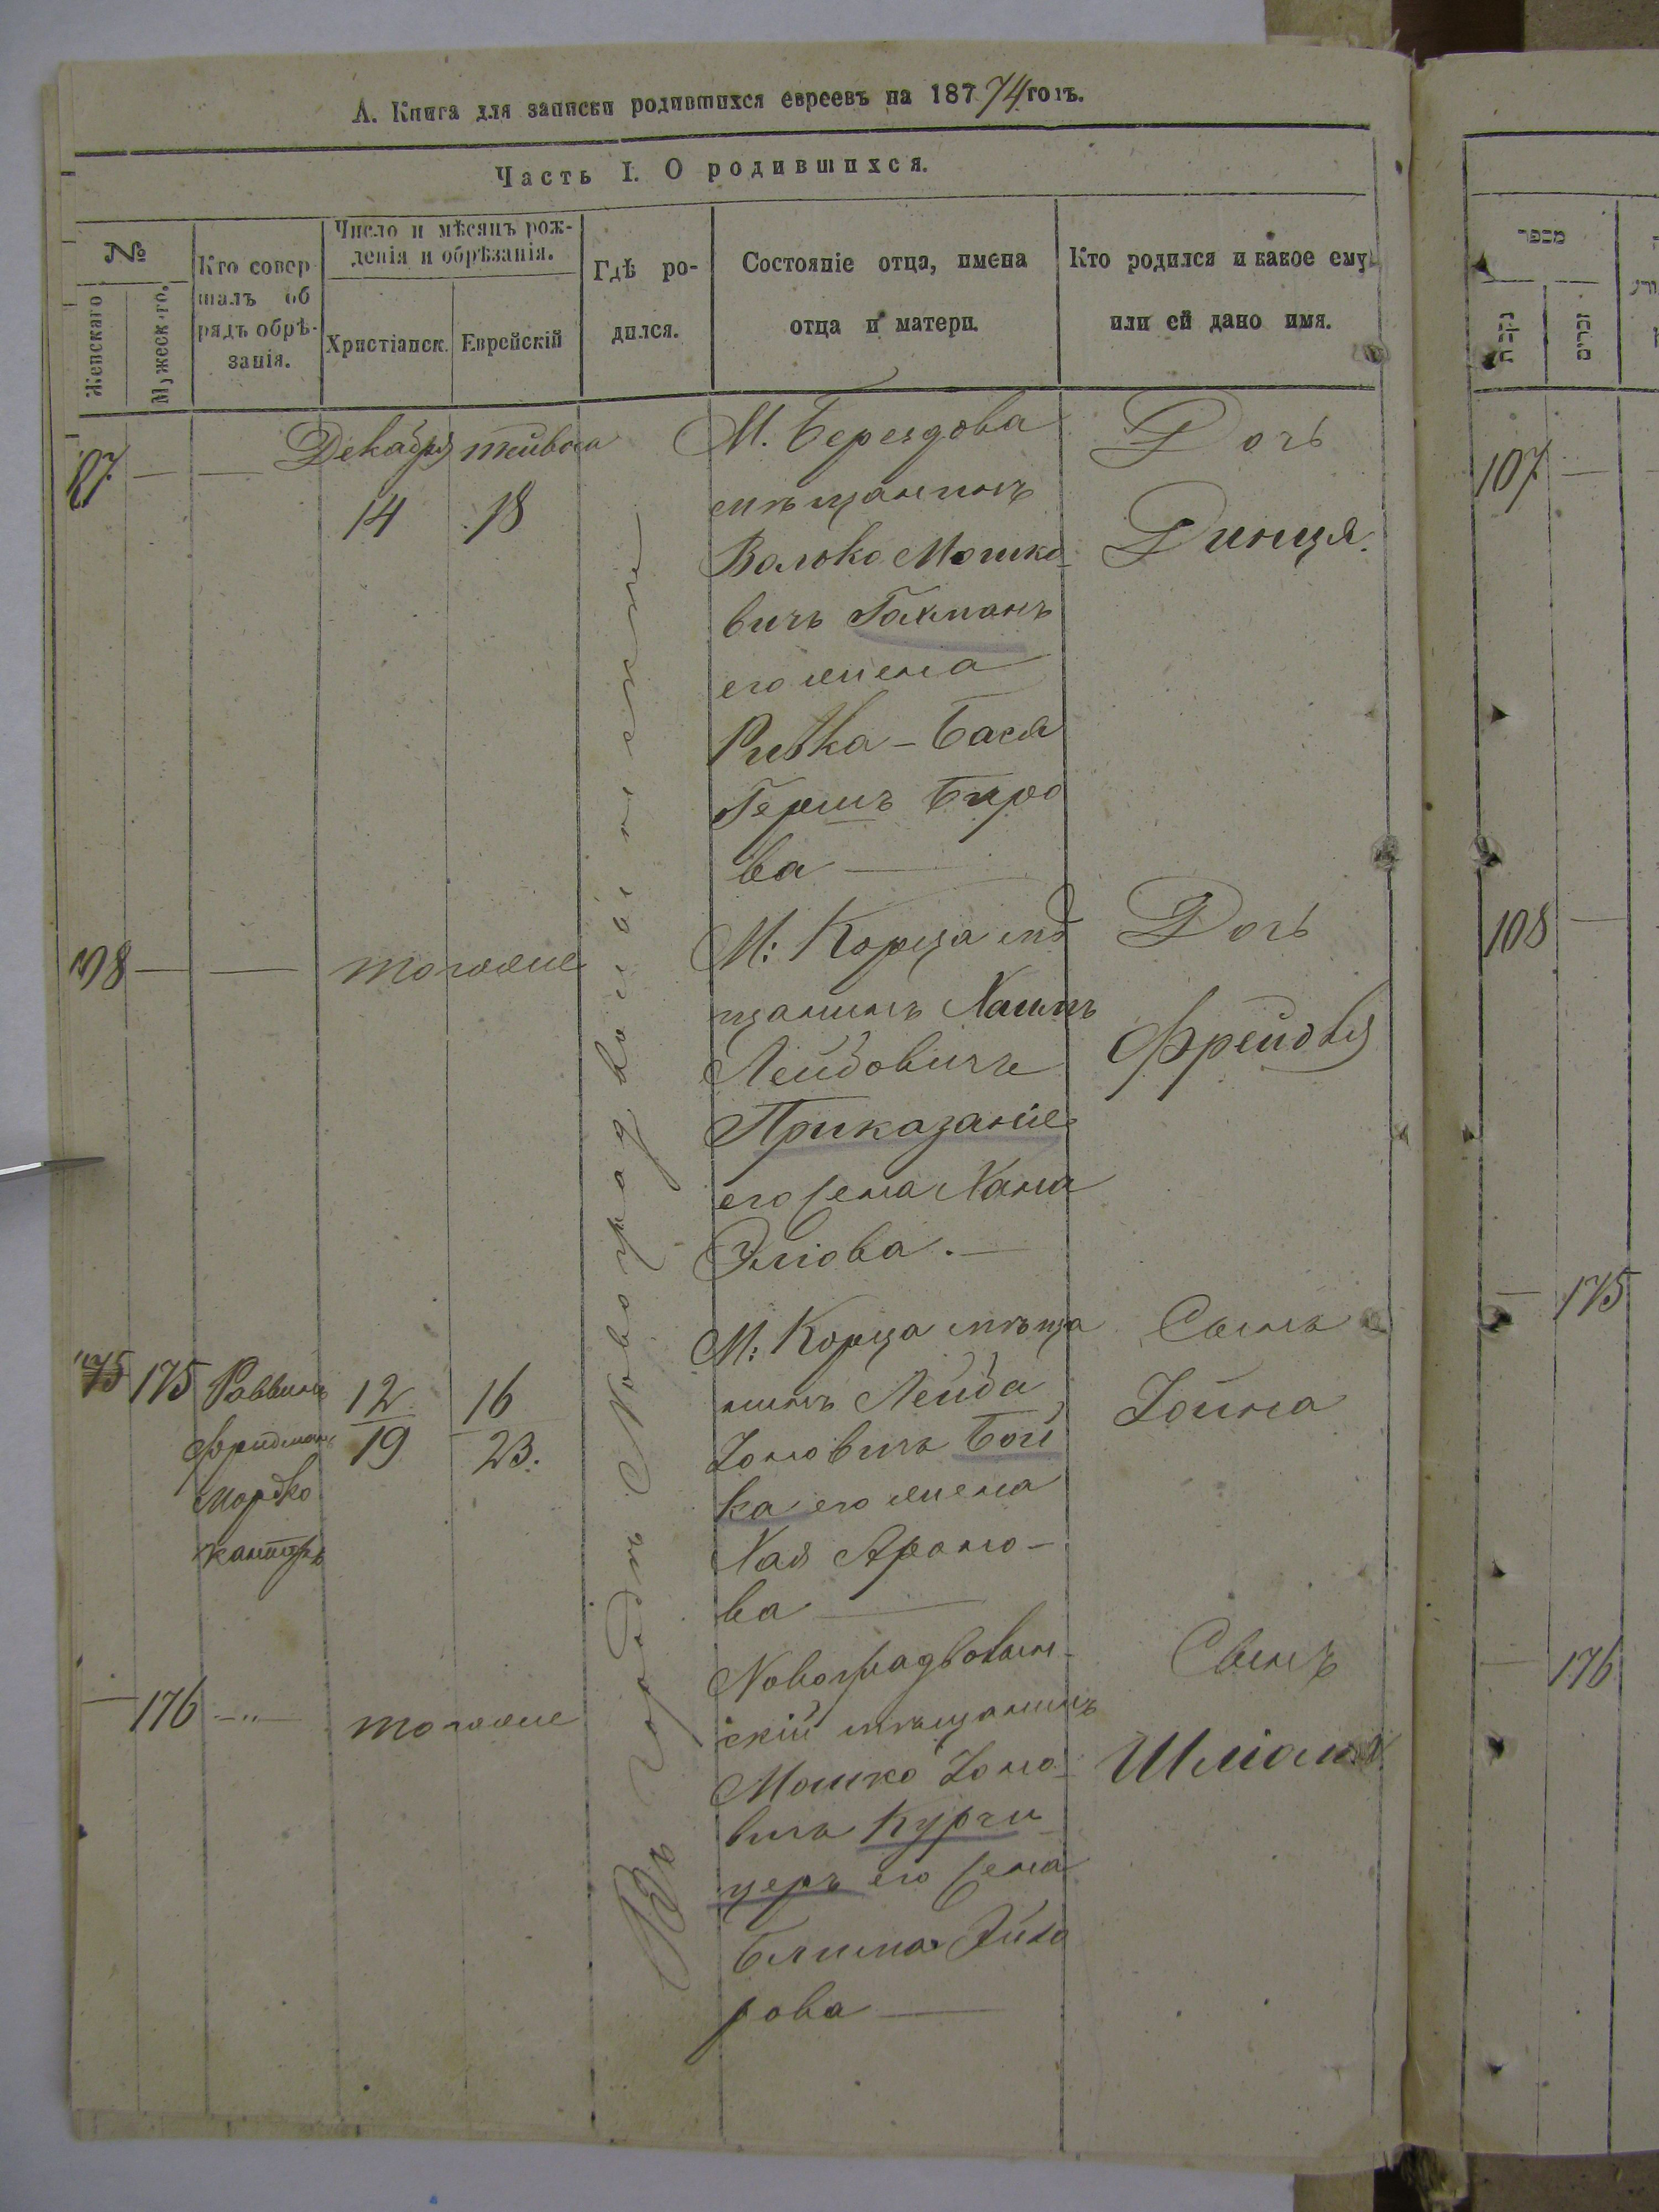 А. Книга для записки родившихся евреевъ на 187 74 годъ.
Часть I. О родившихся.
№
Женскаго
Мужеск-го.
Кто совер-
шалъ об
рядъ обрѣ-
занія.
Число и мѣсяцъ рож-
денія и обрѣзанія.
Христіанск.
Еврейскій
Гдѣ ро-
дился.
Состояніе отца, имена
отца и матери.
Кто родился и какое ему
или ей дано имя.
107 — —
Декабря
14 18
М. Берездова
мѣщанинъ
Волько Мошко-
вичъ Гахманъ
его жена
Ривка - Бася
Гершъ Беро
ва —
Дочь
Динця.
108 — —
тогоже
М: Корца мѣ
щанинъ Хаимъ
Лейбовичъ
Приказаніе
его жена Хана
Элiова. —
Дочь
Фрейдя
175 Раввинъ
Фридманъ
Мордко
Канторъ
12 16
19 23.
М: Корца мѣща
нинъ Лейба
Іоновичъ Бой
ка его жена
Хая Ароно-
ва —
Сынъ
Іойна
— 176 —"—
тогоже
Новоградволын-
скій мѣщанинъ
Мошко Іоно-
вичъ Курчи
церъ его жена
Блима
рова —
Сынъ
Въ городѣ Новоградволынскѣ —
מספר
נקבות
זכרים
107 —
108 —
— 175
— 176